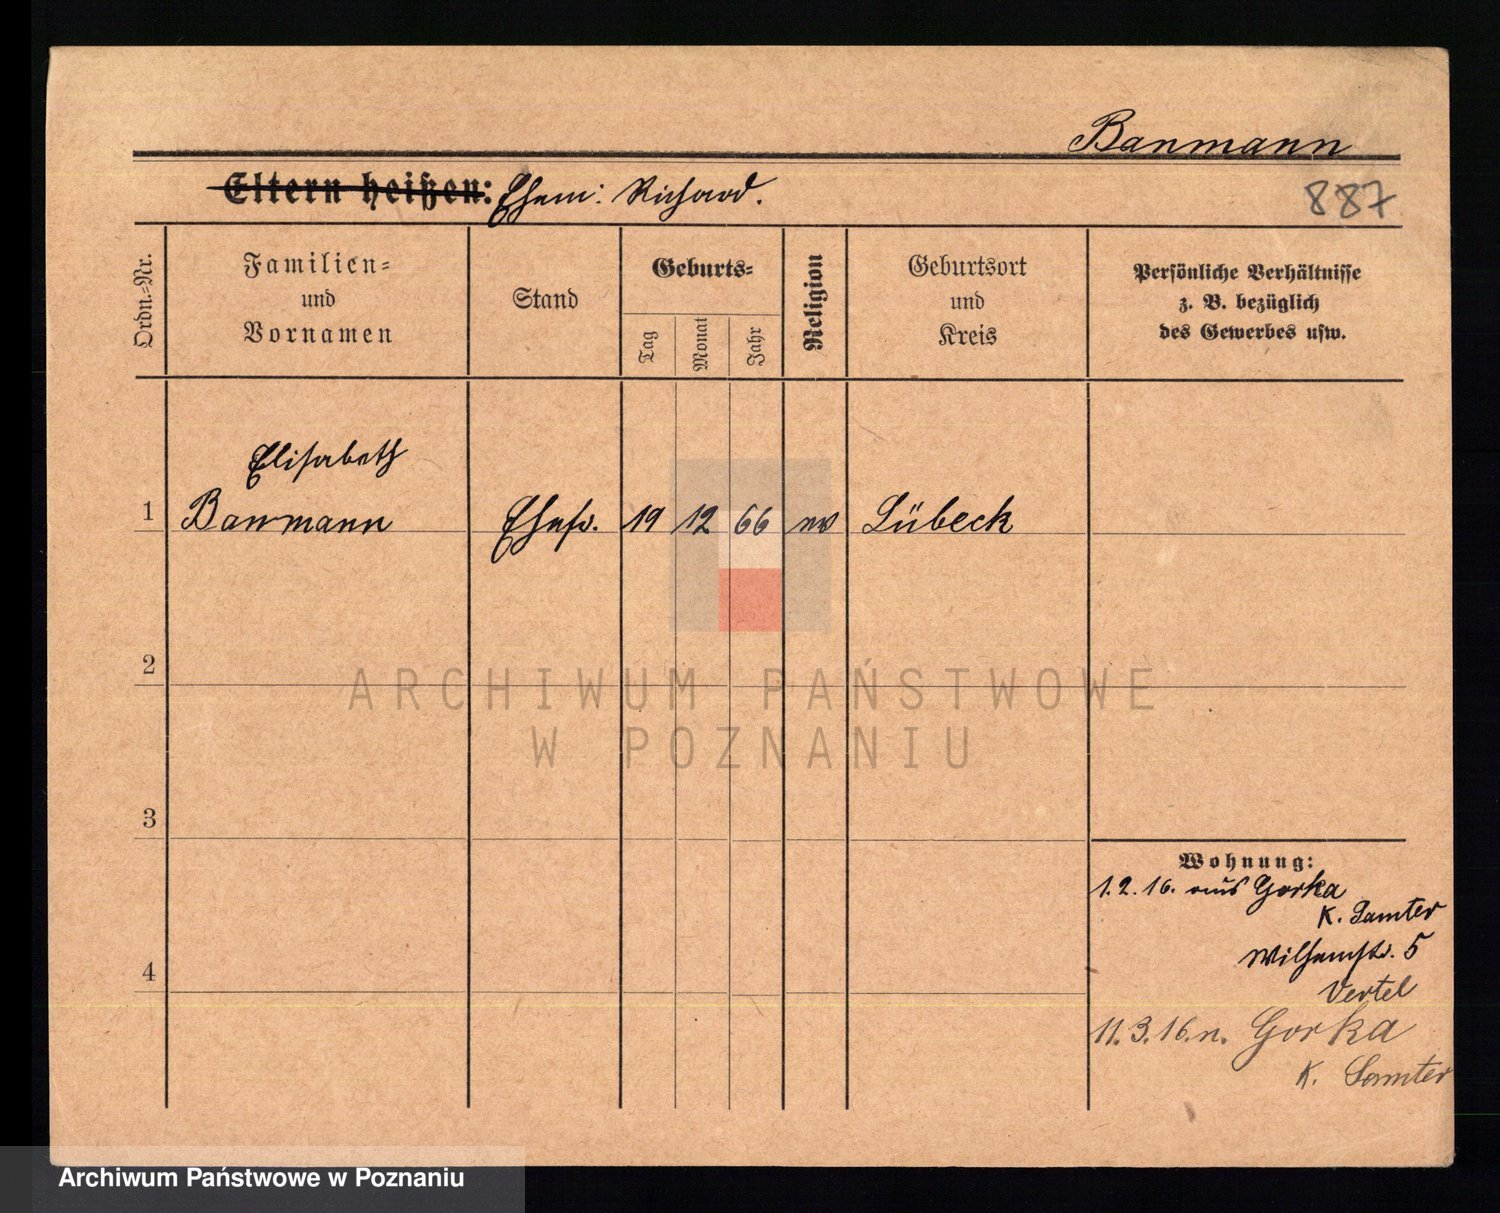 Banmann
Eltern heißen: Ehem: Richard.
887
Ordn.-Nr.
Familien-
und
Vornamen
Stand
Geburts-
Tag
Monat
Jahr
Religion
Geburtsort
und
Kreis
Persönliche Verhältnisse
z. B. bezüglich
des Gewerbes usw.
Elisabeth
1 Banmann Ehefr. 19 12 66 ev Lübeck
2
3
4
Wohnung:
1. 2. 16. aus Gorka
K. Samter
Wilhemstr. 5
Vertel
11. 3. 16. n. Gorka
K. Samter
ARCHIWUM PAŃSTWOWE
W POZNANIU
Archiwum Państwowe w Poznaniu